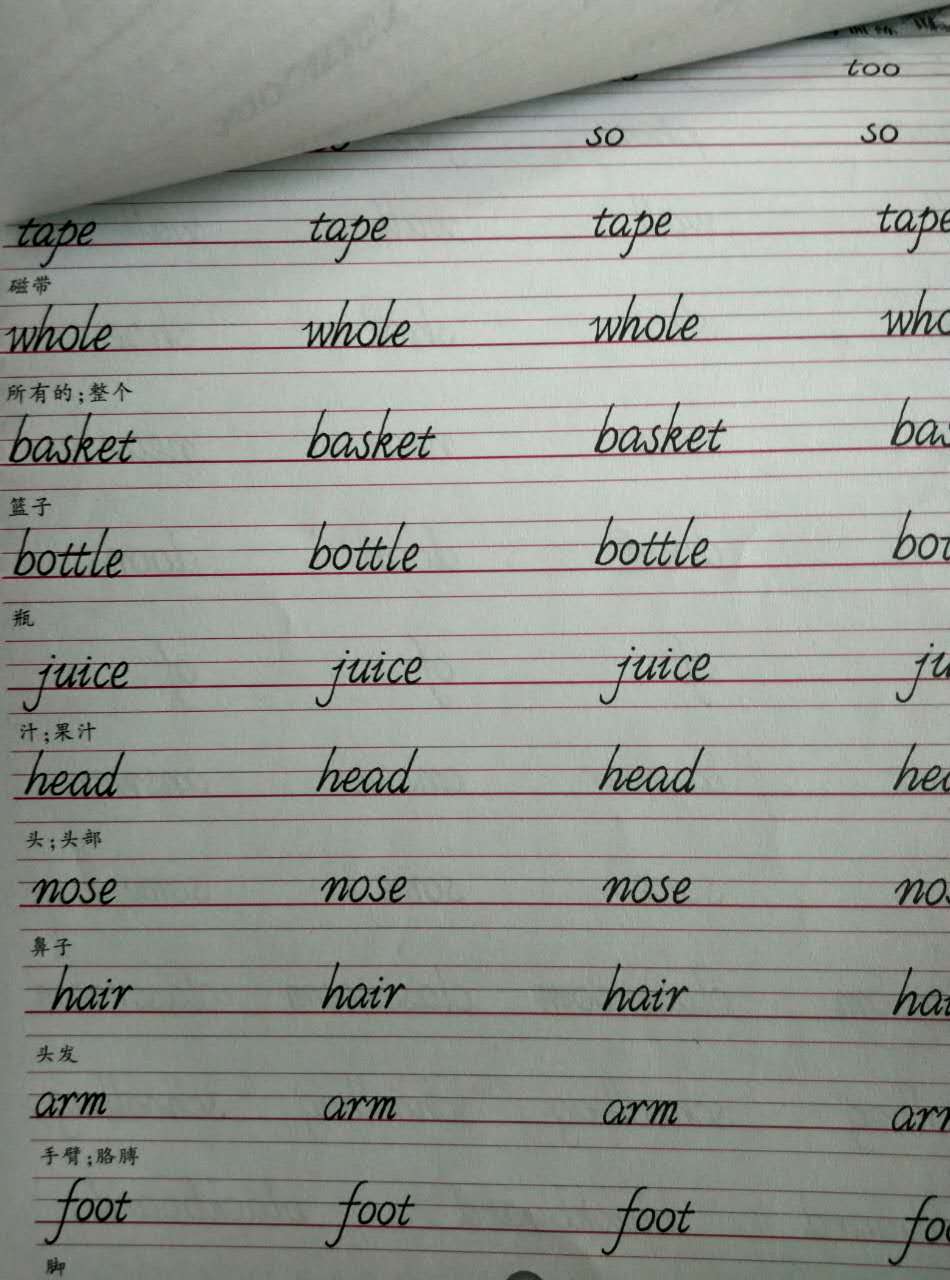 too
so so
tape tape tape tape
磁带
whole whole whole who
所有的;整个
basket basket basket bas
篮子
bottle bottle bottle bot
瓶
juice juice juice ju
汁;果汁
head head head hea
头;头部
nose nose nose nos
鼻子
hair hair hair hai
头发
arm arm arm arm
手臂;胳膊
foot foot foot foo
脚